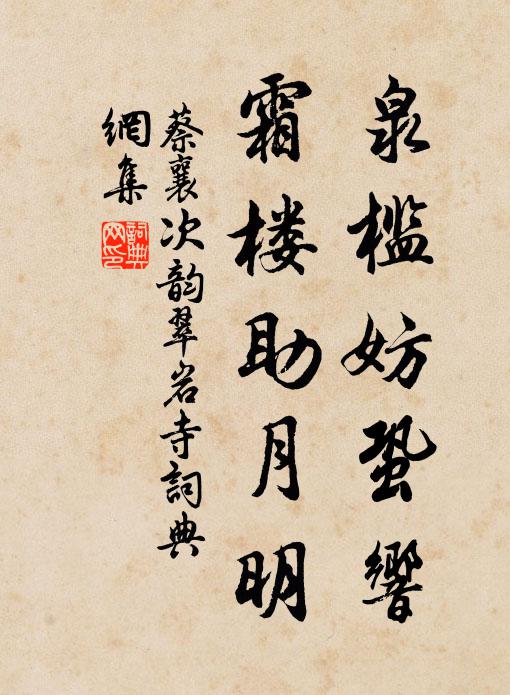 泉槛妨蛩響
霜楼助月明
蔡襄次韵翠岩寺詞典
網集
詞典
网印